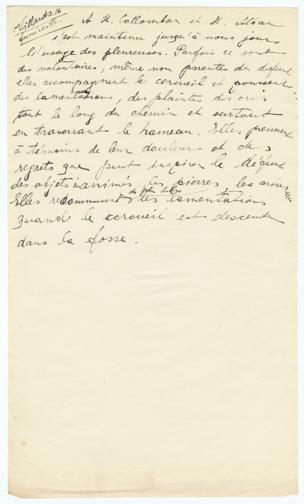 A H. Collomban et H.
s'est maintenu jusqu'à nous jours
l'usage des pleureuses. Parfois ce sont
des volontaires, même non parentes du défunt
elles accompagnent le cercueil et poussent
des lamentations, des plaintes des cris
tout le long du chemin et surtout
en traversant le hameau. Elles prennent
à témoins de leur douleurs et des
regrets que peut inspirer le défunt
des objets inanimés, les pierres, les arbres
Elles recommencent les lamentations
quand le cercueil est descendu
dans la fosse.